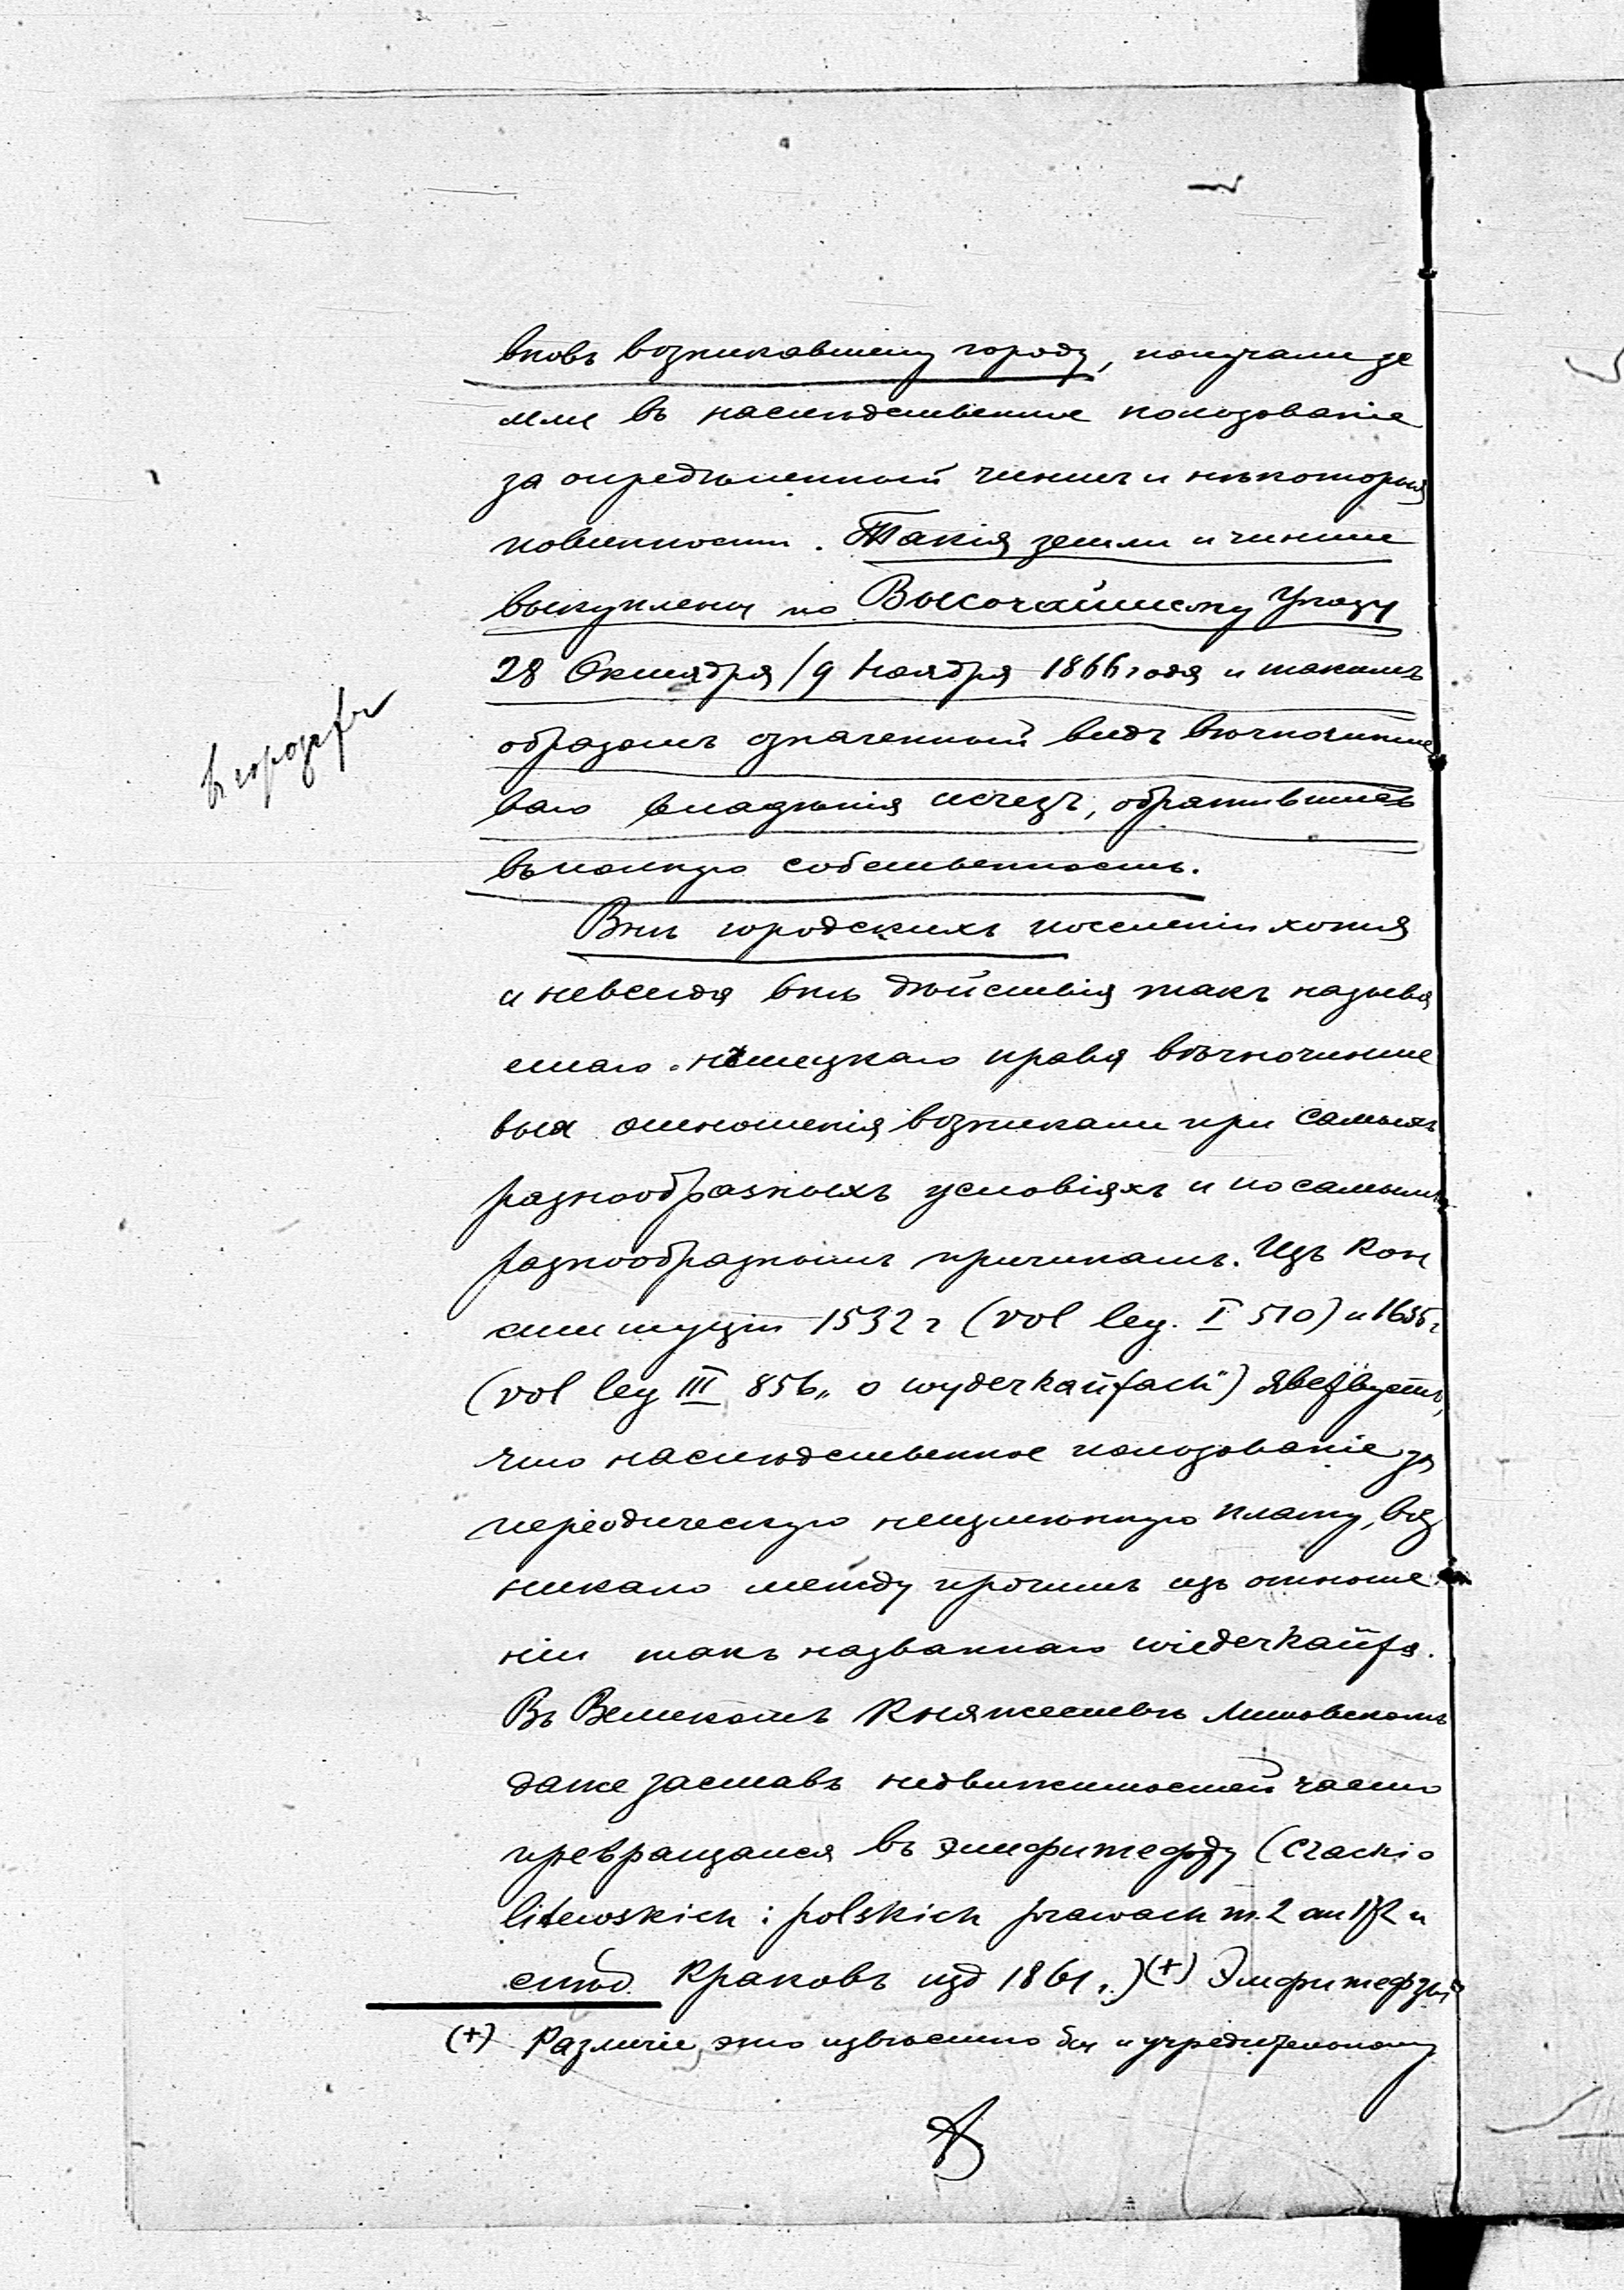 вновь возникавшему городу, получали зе
мли въ наслѣдственное пользованіе
за опредѣленный чиншъ и нѣкоторыя
повинности. Такія земли и чинши
выкуплены по Высочайшему Указу
28 Октября / 9 Ноября 1866 года и такимъ
образомъ означенный видъ вѣчночинше
ваго владѣнія исчезъ, обратившись
въ полную собственность.
Внѣ городскихъ поселеній хотя
и не всегда внѣ дѣйствія такъ называ
емаго нѣмецкаго права вѣчночинше
выя отношенія возникали при самыхъ
разнообразныхъ условіяхъ и по самымъ
разнообразнымъ причинамъ. Изъ Кон
ституцій 1532 г (vol leg. I 510) и 1635 г
(vol leg III 856 „o wyderkaufach“) явствуетъ,
что наслѣдственное пользованіе за
періодическую неизмѣнную плату, воз
никало между прочимъ изъ отноше
ній такъ названнаго wiederkaufa.
Въ Великомъ Княжествѣ Литовскомъ
даже заставъ недвижимостей часто
превращался въ эмфитефзу (Czacki o
litewskich i polskich prawach т. 2 ст 172 и
слѣд Краковъ изд 1861 г.) (+) Эмфитефзы
(+) Различіе это извѣстно бы и учредительному
въ городѣ